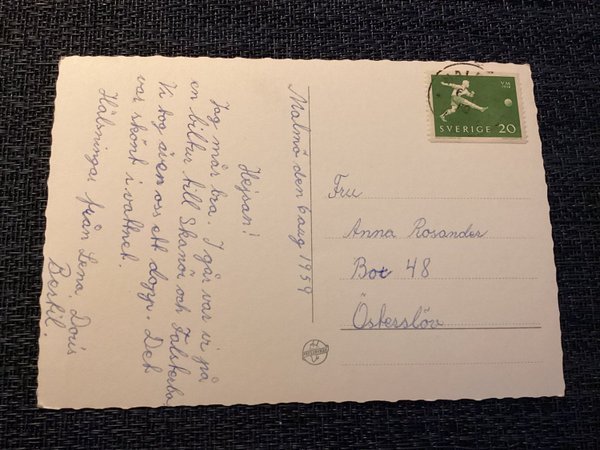 Malmö den 6 aug 1959
Hejsan!
Jag mår bra. I går var vi på
en biltur till Skanör och Falsterbo
Vi tog även oss ett dopp. Det
var skönt i vattnet.
Hälsningar från Lena. Doris
Bertil.
VM
1958
SVERIGE 20
Fru
Anna Rosander
Box 48
Östersslöv